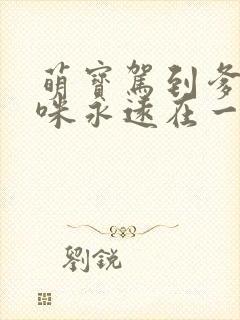 萌寶駕到爹
咪永遠在一
劉銳